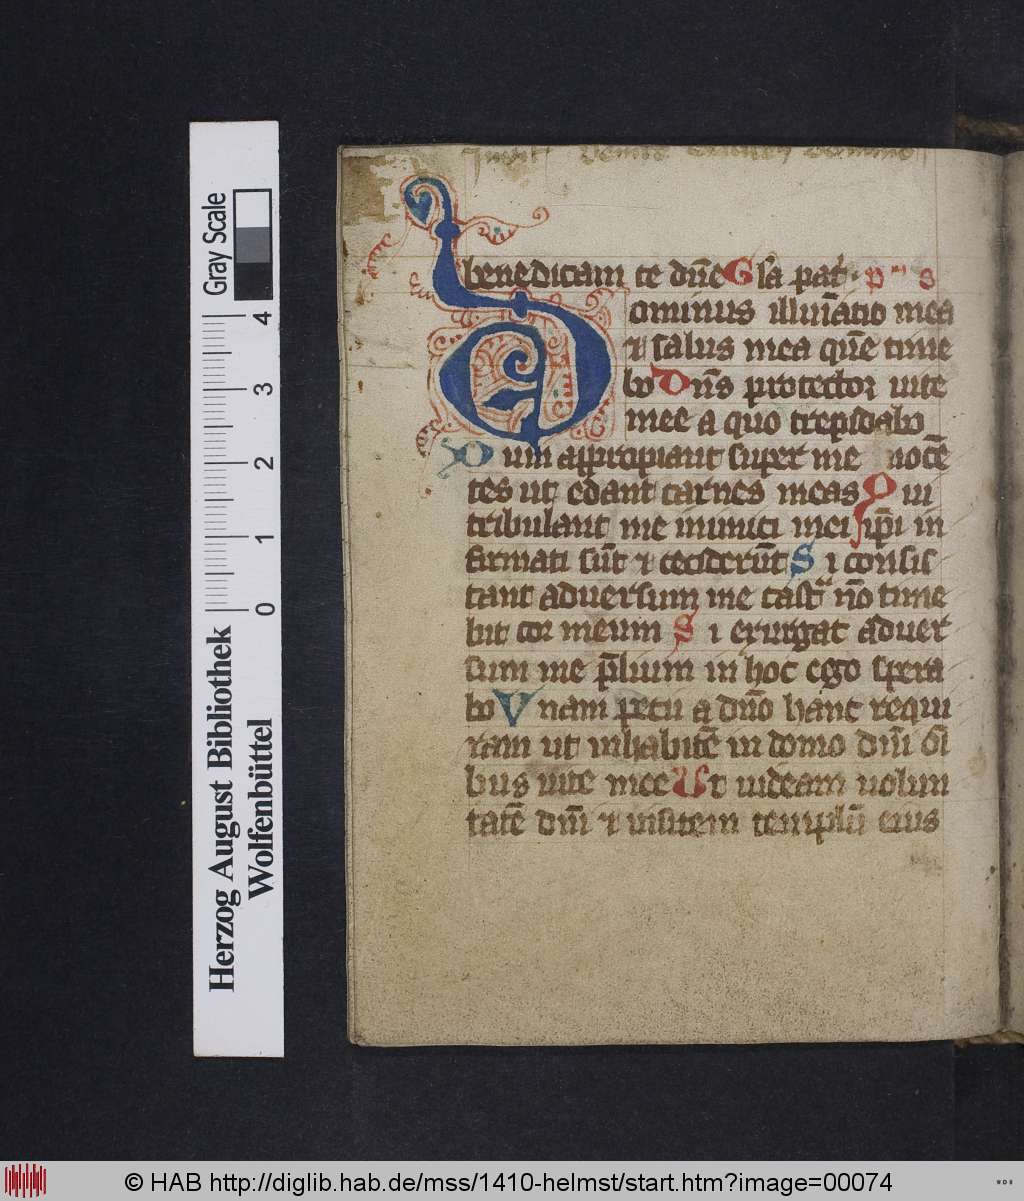 benedicam te dn̄e Gła pat͛ · p'' s
Dominus illuīatio mea
⁊ salus mea quē time
bo Dn̄s protector uite
mee a quo trepidabo
Dum appropiant super me nocē
tes ut edant carnes meas Qui
tribulant me inimici mei ip̄i in
firmati sūt ⁊ ceciderūt Si consis
tant aduersum me cast͛ nō time
bit cor meum Si exurgat aduer
sum me p̄lium in hoc ego spera
bo Vnam petii a dn̄o hanc requi
ram ut inhabitē in domo dn̄i oī
bus uite mee Ut uideam uolun
tatē dn̄i ⁊ uisitem templū eius
Gray Scale
0 1 2 3 4
Herzog August Bibliothek
Wolfenbüttel
© HAB http://diglib.hab.de/mss/1410-helmst/start.htm?image=00074